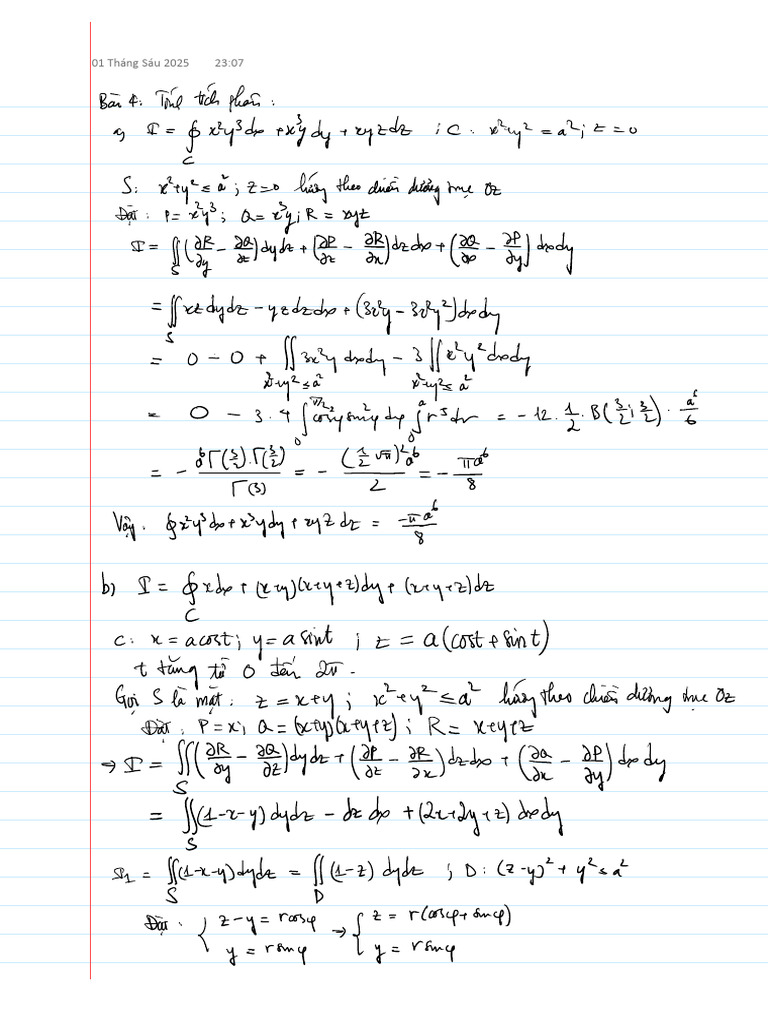 01 Tháng Sáu 2025 23:07
Bài 4: Tính tích phân:
a) I = ∮_C x²y³dx + x³y dy + xyz dz ; C: x²+y² = a² ; z = 0
S: x²+y² ≤ a² ; z=0 hướng theo chiều dương trục Oz
Đặt: P = x²y³ ; Q = x³y ; R = xyz
I = ∬_S (∂R/∂y − ∂Q/∂z) dydz + (∂P/∂z − ∂R/∂x) dzdx + (∂Q/∂x − ∂P/∂y) dxdy
= ∬_S xz dydz − yz dzdx + (3x²y − 3x²y²) dxdy
= 0 − 0 + ∬_{x²+y² ≤ a²} 3x²y dxdy − 3 ∬_{x²+y² ≤ a²} x²y² dxdy
= 0 − 3.4 ∫_0^{π/2} cos²φ sin²φ dφ ∫_0^a r⁵ dr = −12. 1/2 . B(3/2 ; 3/2) . a⁶/6
= − a⁶Γ(3/2).Γ(3/2) / Γ(3) = − (1/2 √π)² a⁶ / 2 = − πa⁶/8
Vậy: ∮ x²y³dx + x³y dy + xyz dz = −πa⁶/8
b) I = ∮_C x dx + (x+y)(x+y+z) dy + (x+y+z) dz
C: x = a cost ; y = a sint ; z = a(cost + sint)
t tăng từ 0 đến 2π.
Gọi S là mặt: z = x+y ; x²+y² ≤ a² hướng theo chiều dương trục Oz
Đặt: P = x ; Q = (x+y)(x+y+z) ; R = x+y+z
→ I = ∬_S (∂R/∂y − ∂Q/∂z) dydz + (∂P/∂z − ∂R/∂x) dzdx + (∂Q/∂x − ∂P/∂y) dxdy
= ∬_S (1−x−y) dydz − dz dx + (2x+2y+z) dxdy
I₁ = ∬_S (1−x−y) dydz = ∬_D (1−z) dydz ; D: (z−y)² + y² ≤ a²
Đặt: { z−y = r cosφ → { z = r(cosφ + sinφ)
y = r sinφ y = r sinφ